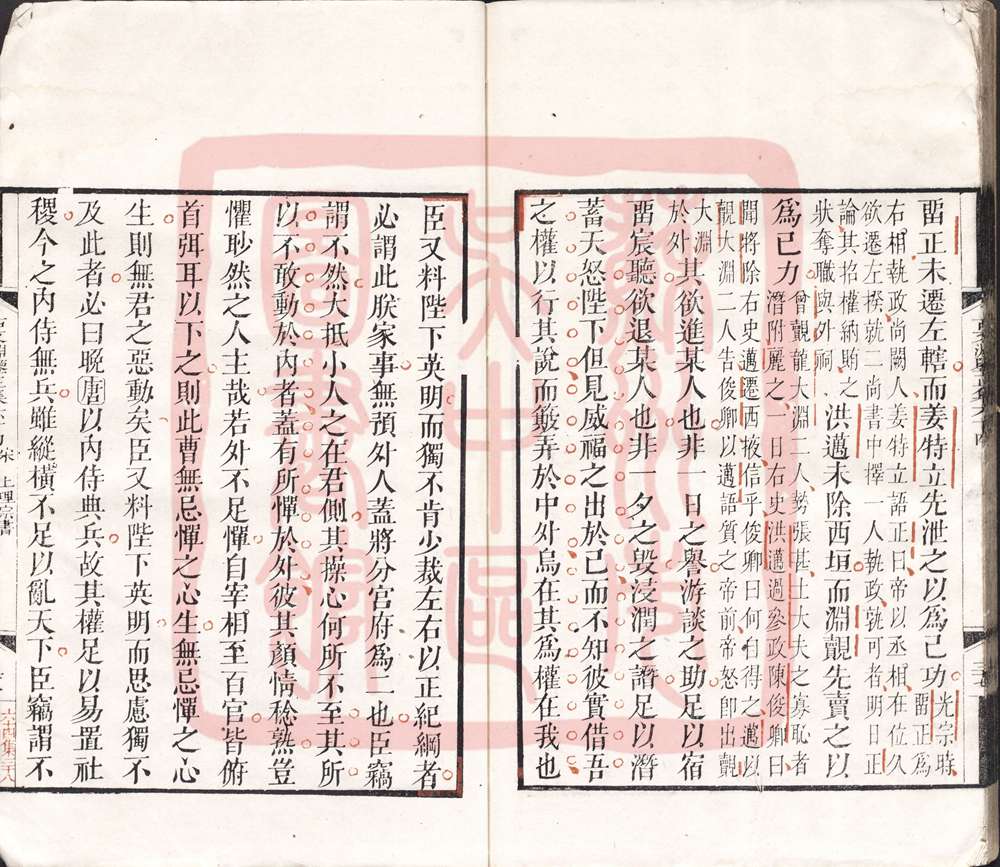 畱正未遷左轄而姜特立先泄之以爲己功光宗時畱正爲
右相執政尚闕人姜特立語正曰帝以丞相在位久
欲遷左揆就二尚書中擇一人執政孰可者明日正
論其招權納賄之
狀奪職與外祠洪邁未除西垣而淵覿先賣之以
爲己力曾覿龍大淵二人勢張甚士大夫之寡恥者
潛附麗之一日右史洪邁過參政陳俊卿曰
聞將除右史邁遷西掖信乎俊卿曰何自得之邁以
覿大淵二人告俊卿以邁語質之帝前帝怒即出覿
大淵
於外其欲進某人也非一日之譽游談之助足以宿
畱宸聽欲退某人也非一夕之毀浸潤之譖足以潛
蓄天怒陛下但見威福之出於己而不知彼實借吾
之權以行其說而簸弄於中外烏在其爲權在我也
臣又料陛下英明而獨不肯少裁左右以正紀綱者
必謂此朕家事無預外人蓋將分官府爲二也臣竊
謂不然大抵小人之在君側其操心何所不至其所
以不敢動於內者蓋有所憚於外彼其顏情稔熟豈
懼眇然之人主哉若外不足憚自宰相至百官皆俯
首弭耳以下之則此曹無忌憚之心生無忌憚之心
生則無君之惡動矣臣又料陛下英明而思慮獨不
及此者必曰晚唐以內侍典兵故其權足以易置社
稷今之內侍無兵雖縱橫不足以亂天下臣竊謂不